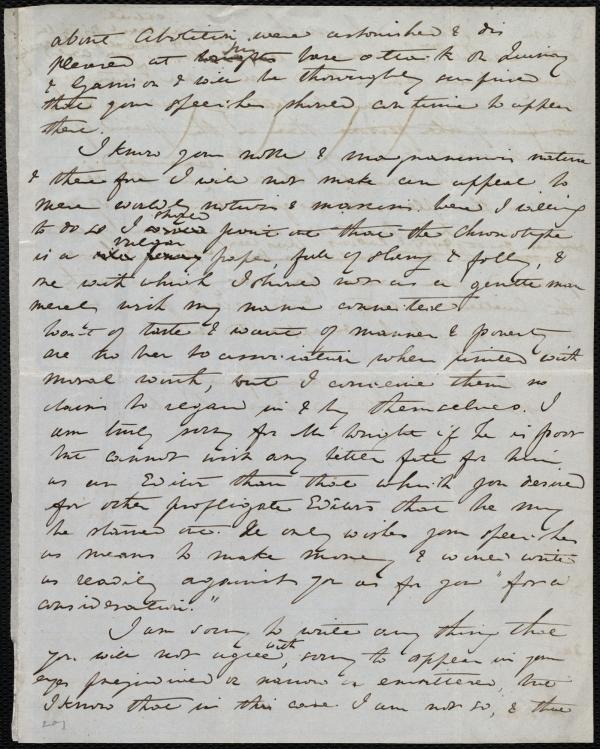 about Abolition were astonished & dis
pleased at his base attack on Quincy
& Garrison & will be thoroughly surprised
that your speeches should continue to appear
there.
I know your noble & magnanimous nature
& therefore I will not make an appeal to
mere worldly notions & maxims. Were I willing
to do so I should point out that the Chronotype
is a vulgar paper full of slang & folly, &
one with which I should not as a gentleman
merely wish my name connected
Want of taste & want of manner & poverty
are no bar to association when united with
moral worth, but I conceive them no
claims to regard in & by themselves. I
am truly sorry for Mr Wright if he is poor
but cannot wish any better fate for him
as an Editor than that which you desired
for other profligate Editors that he may
be starved out. He only wishes your speeches
as means to make money & would write
as readily against you as for you "for a
consideration."
I am sorry to write any thing that
you will not agree with, sorry to appear in your
eyes prejudiced or narrow or embittered, but
I know that in this case I am not so, & that